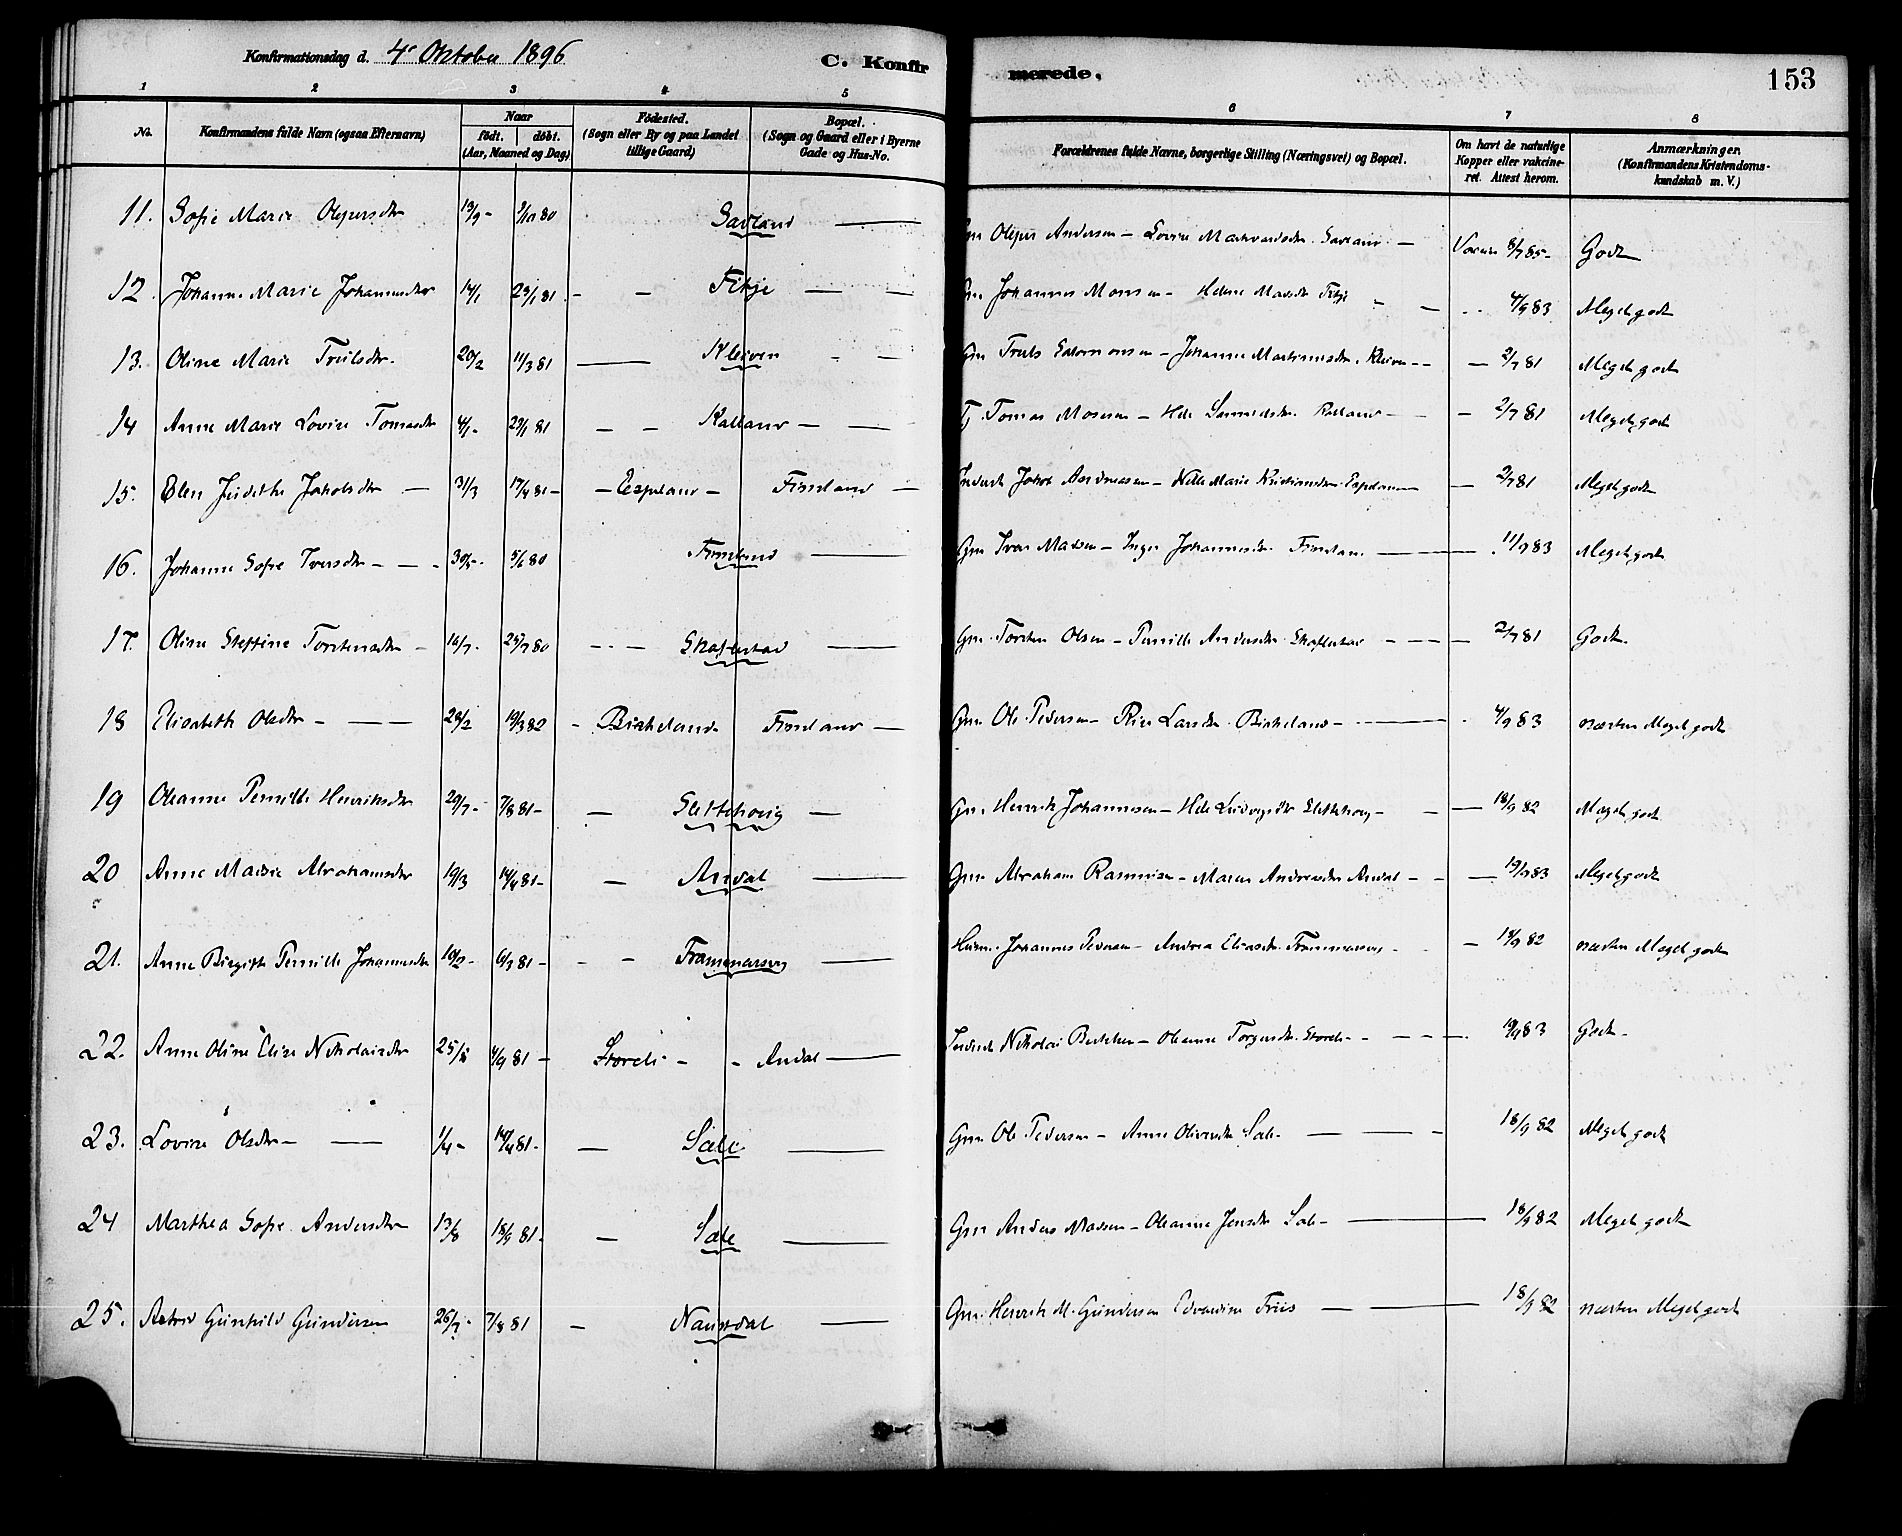 Konfirmationsdag d. 4de Oktober 1896 C. Konfirmerede. 153
1 2 3 4 5 6 7 8
No. Konfirmandens fulde Navn (ogsaa Efternavn) Naar födt. döbt. (Aar, Maaned og Dag) Födested. (Sogn eller By og paa Landet tillige Gaard) Bopæl. (Sogn og Gaard eller i Byerne Gade og Hus-No. Forældrenes fulde Navne, borgerlige Stilling (Næringsvei) og Bopæl. Om havt de naturlige Kopper eller vakcineret. Attest herom. Anmærkninger. (Konfirmandens Kristendomskundskab m. V.)
11. Sofie Marie Olgersdtr 13/9 - 3/10 80 Savland — Gm Olger Andersen - Lovise Savland — 8/7 85 - Godt
12. Johanne Marie Johannesdtr 14/1 23/1 81 - — Fitje — — Gm Johannes Monsen - Helene Madsdtr Fitje - — 4/9 83 Meget godt
13. Oline Marie Trulsdtr. 20/2 11/3 81 — Kleiven - — Gm Truls Salomonsen - Johanne Martinusdtr. Kleiven -- — 2/7 81 Meget godt
14 Anne Marie Lovise Tomasdtr 4/1 - 23/1 81 — — Kalland — — Tomas Mosesen - Hele Samuelsdtr. Kalland - — 2/7 81 Meget godt
15. Elen Judithe Jakobsdtr — 31/3 17/4 81 - - Espeland - Fimland — Inderst Jakob Andreassen - Nille Marie Kristiansdtr Espeland — 2/7 81 Meget godt
16. Johanne Sofie Iversdtr - — - 30/5 - 5/6 80 Fimland — Gm Iver Madsen - Inger Johannesdtr Fimland — 11/9 83 Meget godt
17. Oline Steffine Torstensdtr - 16/7 - 25/7 80 - - — Skaflestad — Gm. Torsten Olsen - Pernille Andersdtr Skaflestad - — - — 2/7 81 Godt.
18 Elisabeth Olsdtr - — 28/2 19/3 82 - Birkeland Fimland — Gm Ole Pedersen - Larsdtr Birkeland - — 4/9 83 næsten Meget godt
19 Oleanne Pernille Henriksdtr 29/7 - 7/8 81 - — Slettehovig — Gm. Henrik Johannesen - Hele Ludvigsdtr Slettehovig - — 18/9 82 Meget godt
20 Anne Marie Abrahamsdtr 19/3 14/4 81 - — Andal — Gm Abraham Rasmusen - Andreasdtr Andal - - — 19/9 83 Meget godt
21. Anne Birgitte Pernille Johannesdtr 10/2 - 6/3 81 - - — Frammarsvig — Husm. Johannes Pedersen - Andrea Eliasdtr. Frammarsvig — 18/9 82 næsten Meget godt
22. Anne Oline Elise Nikolaisdtr 25/8 4/9 81 - Storeli - - Andal — Inderst Nikolai Bertelsen - Oleanne Torgersdtr. Storeli - - — 19/9 83 Godt -
23. Lovise Olsdtr - — 1/4 - 14/4 81 - — Sæle — Gm. Ole Pedersen - Anne Olivesdtr Sæle - — 18/9 82 Meget godt
24 Marthea Sofie Andersdtr 13/8 18/9 81 - — Sæle — Gm Anders Madsen - Oleanne Jensdtr Sæle - — 18/9 82 Meget godt
25. Astrid Gunhild Gundersen 26/7 - 7/8 81 — Naustdal — Gm. Henrik M. Gundersen Edvardine Friis — 18/9 82 næsten Meget godt